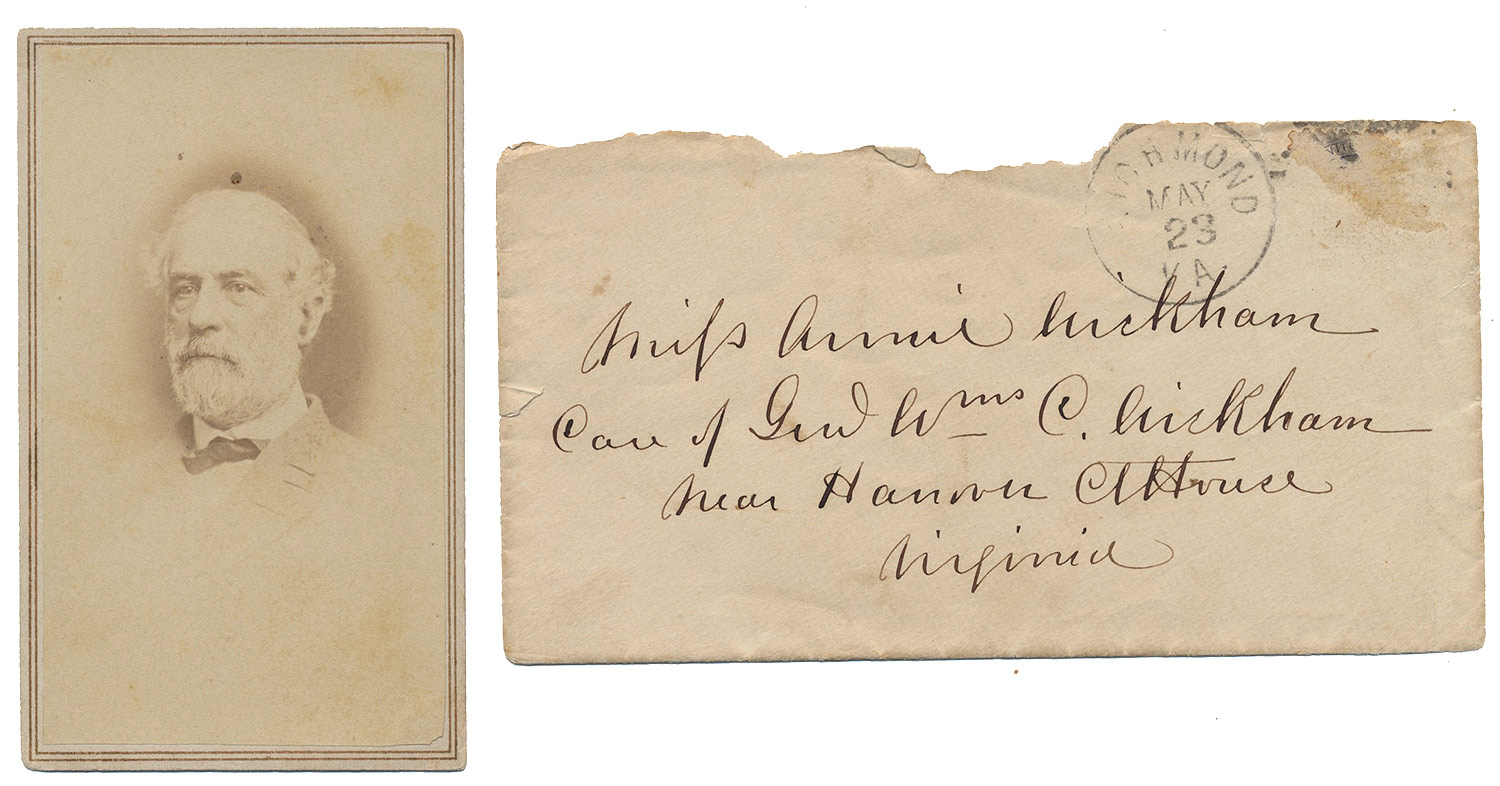 RICHMOND
MAY
23
VA
Miss Annie Wickham
Care of Genl Wms C. Wickham
near Hanover CtHouse
Virginia